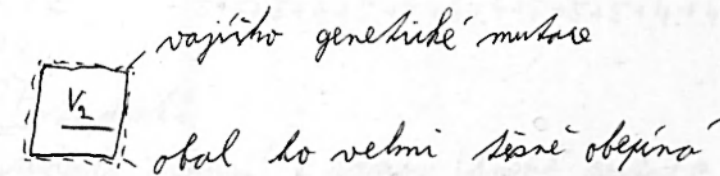 vajíčko genetické mutace
V₂
obal ho velmi těsně obepíná